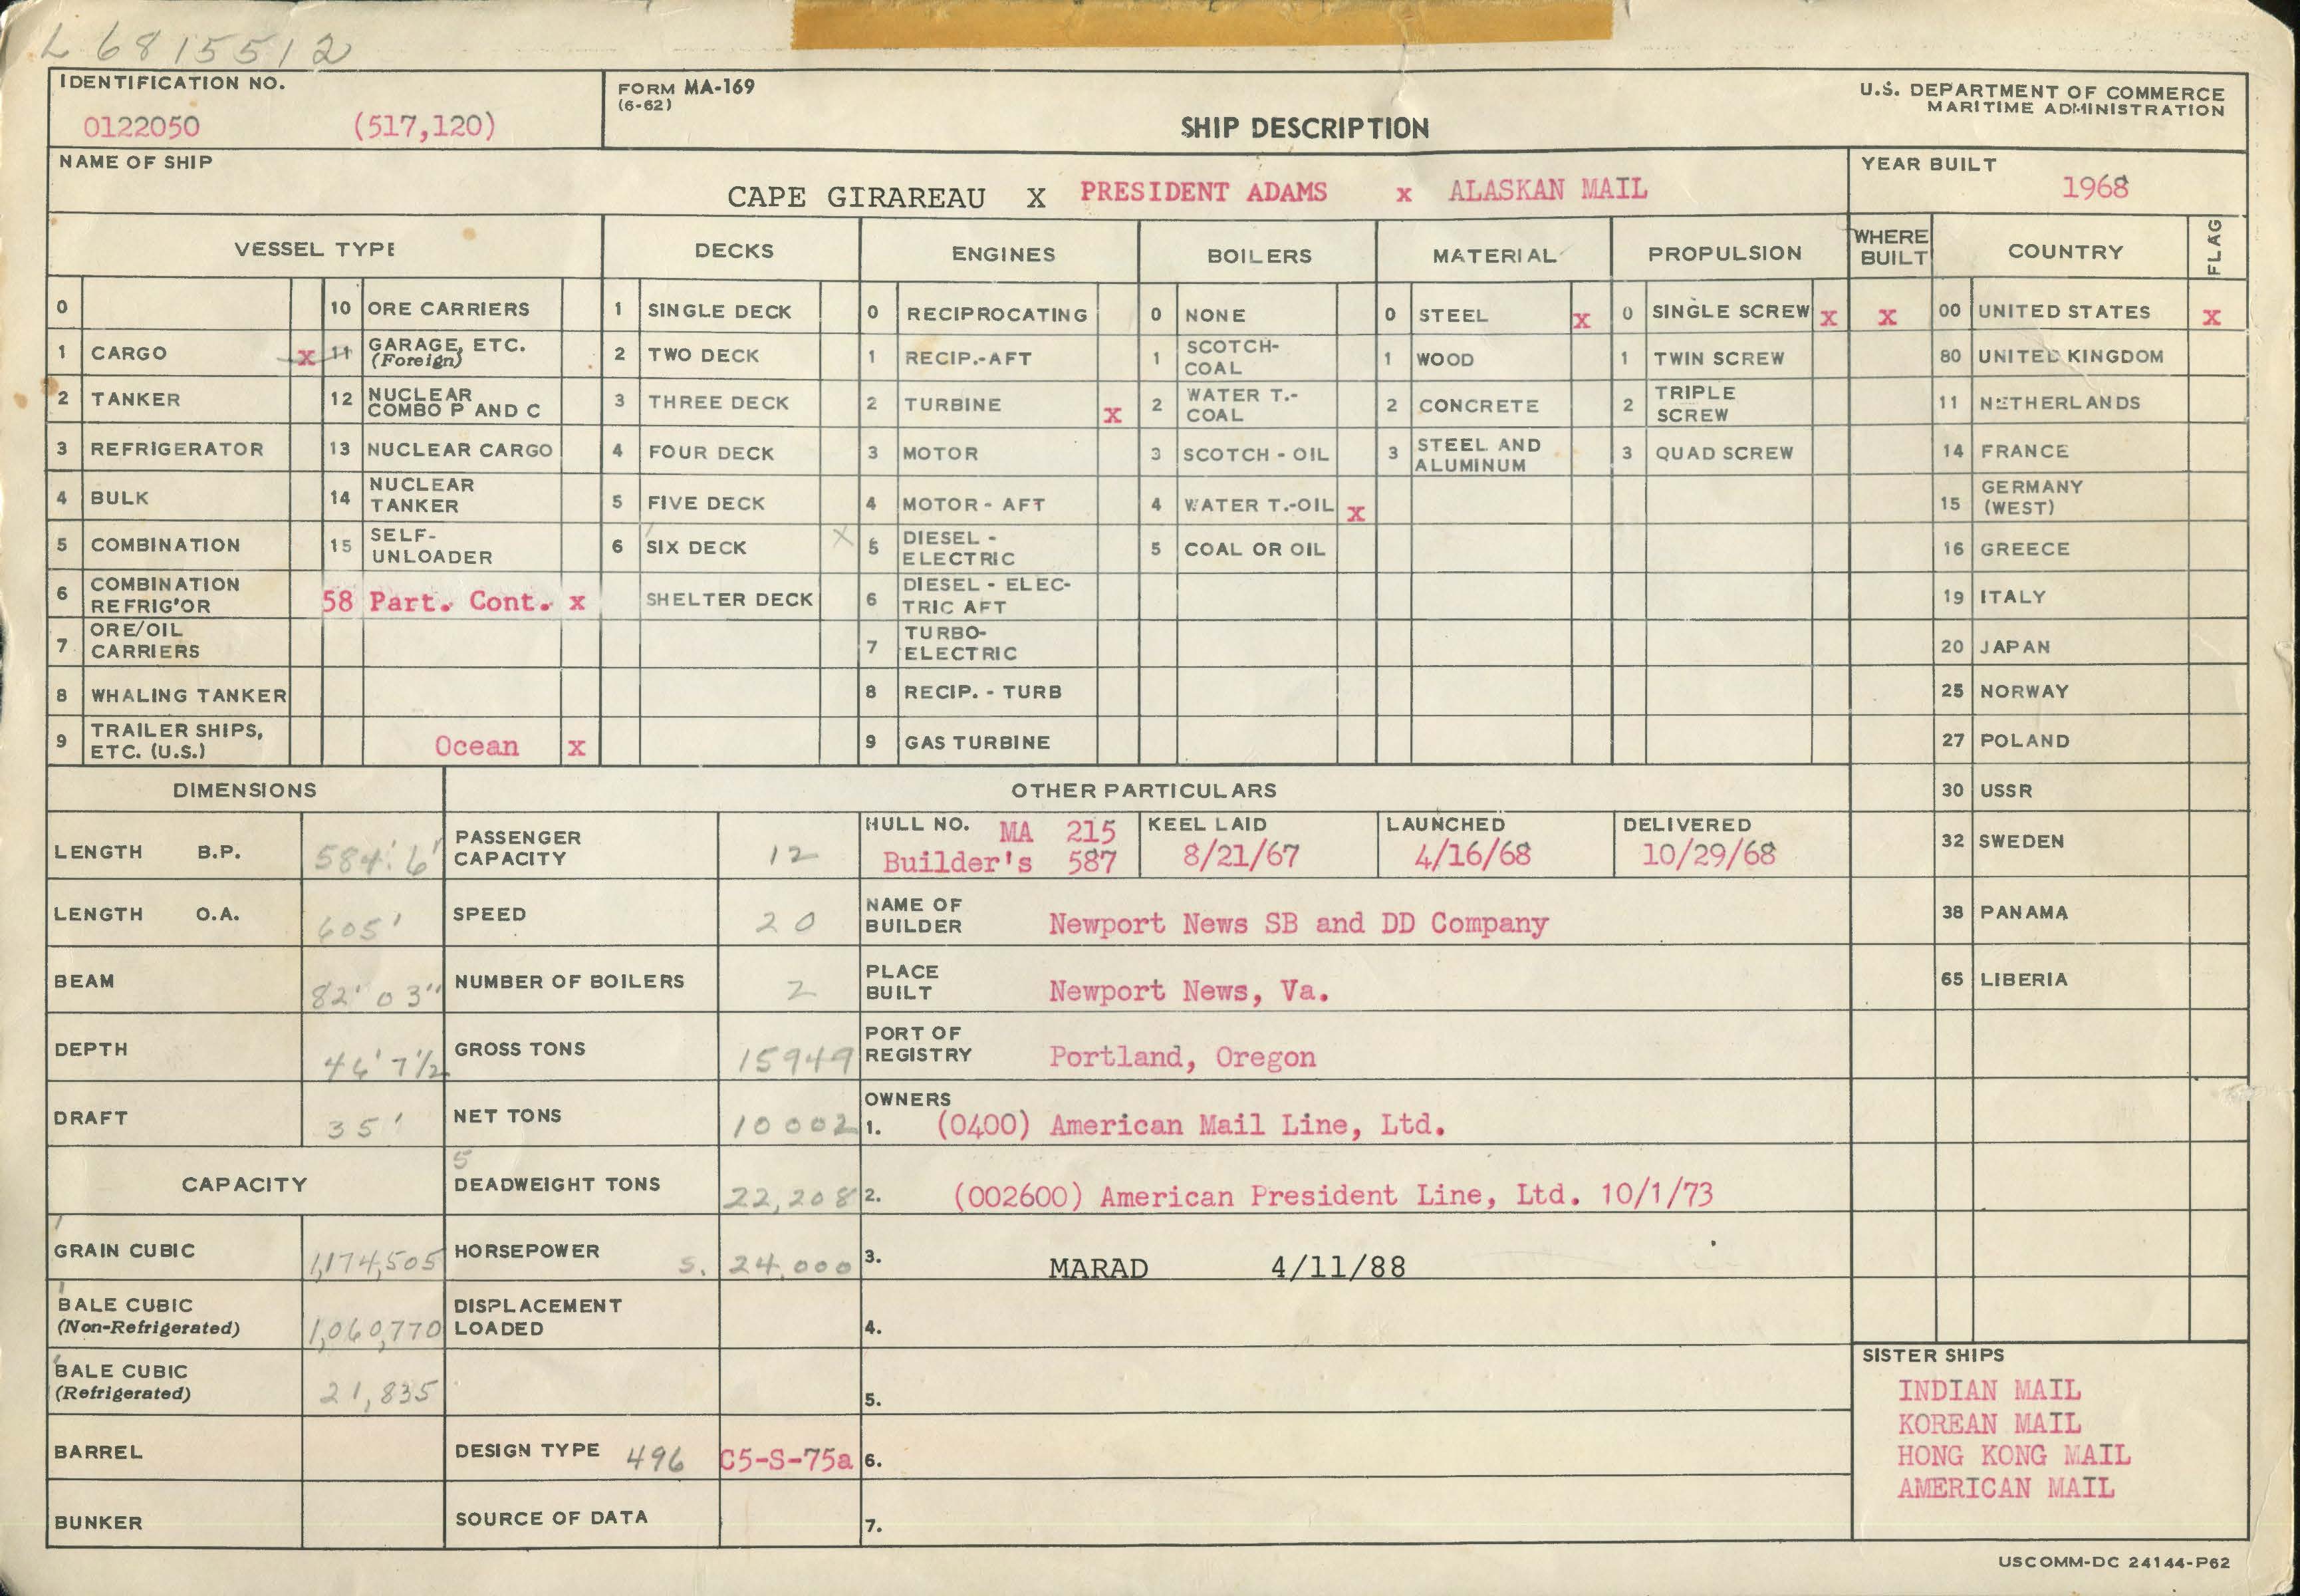 L 6815512
IDENTIFICATION NO.
0122050 (517,120)
FORM MA-169
(6-62)
SHIP DESCRIPTION
U.S. DEPARTMENT OF COMMERCE
MARITIME ADMINISTRATION
NAME OF SHIP
CAPE GIRAREAU X PRESIDENT ADAMS x ALASKAN MAIL
YEAR BUILT
1968
VESSEL TYPE DECKS ENGINES BOILERS MATERIAL PROPULSION WHERE BUILT COUNTRY FLAG
0 10 ORE CARRIERS 1 SINGLE DECK 0 RECIPROCATING 0 NONE 0 STEEL x 0 SINGLE SCREW x x 00 UNITED STATES x
1 CARGO x 11 GARAGE, ETC. (Foreign) 2 TWO DECK 1 RECIP.-AFT 1 SCOTCH-COAL 1 WOOD 1 TWIN SCREW 80 UNITED KINGDOM
2 TANKER 12 NUCLEAR COMBO P AND C 3 THREE DECK 2 TURBINE x 2 WATER T.-COAL 2 CONCRETE 2 TRIPLE SCREW 11 NETHERLANDS
3 REFRIGERATOR 13 NUCLEAR CARGO 4 FOUR DECK 3 MOTOR 3 SCOTCH - OIL 3 STEEL AND ALUMINUM 3 QUAD SCREW 14 FRANCE
4 BULK 14 NUCLEAR TANKER 5 FIVE DECK 4 MOTOR - AFT 4 WATER T.-OIL x 15 GERMANY (WEST)
5 COMBINATION 15 SELF-UNLOADER 6 SIX DECK x 5 DIESEL - ELECTRIC 5 COAL OR OIL 16 GREECE
6 COMBINATION REFRIG'OR 58 Part. Cont. x SHELTER DECK 6 DIESEL - ELECTRIC AFT 19 ITALY
7 ORE/OIL CARRIERS 7 TURBO-ELECTRIC 20 JAPAN
8 WHALING TANKER 8 RECIP. - TURB 25 NORWAY
9 TRAILER SHIPS, ETC. (U.S.) Ocean x 9 GAS TURBINE 27 POLAND
DIMENSIONS OTHER PARTICULARS 30 USSR
LENGTH B.P. 584' 6" PASSENGER CAPACITY 12
HULL NO. MA 215
Builder's 587
KEEL LAID
8/21/67
LAUNCHED
4/16/68
DELIVERED
10/29/68
32 SWEDEN
LENGTH O.A. 605' SPEED 20 NAME OF BUILDER Newport News SB and DD Company 38 PANAMA
BEAM 82' 03" NUMBER OF BOILERS 2 PLACE BUILT Newport News, Va. 65 LIBERIA
DEPTH 46' 7 1/2 GROSS TONS 15949 PORT OF REGISTRY Portland, Oregon
DRAFT 35' NET TONS 10002 OWNERS
1. (0400) American Mail Line, Ltd.
CAPACITY 5 DEADWEIGHT TONS 22,208 2. (002600) American President Line, Ltd. 10/1/73
GRAIN CUBIC 1,174,505 HORSEPOWER S. 24,000 3. MARAD 4/11/88
BALE CUBIC (Non-Refrigerated) 1,060,770 DISPLACEMENT LOADED 4.
BALE CUBIC (Refrigerated) 21,835 5.
BARREL DESIGN TYPE 496 C5-S-75a 6.
BUNKER SOURCE OF DATA 7.
SISTER SHIPS
INDIAN MAIL
KOREAN MAIL
HONG KONG MAIL
AMERICAN MAIL
USCOMM-DC 24144-P62